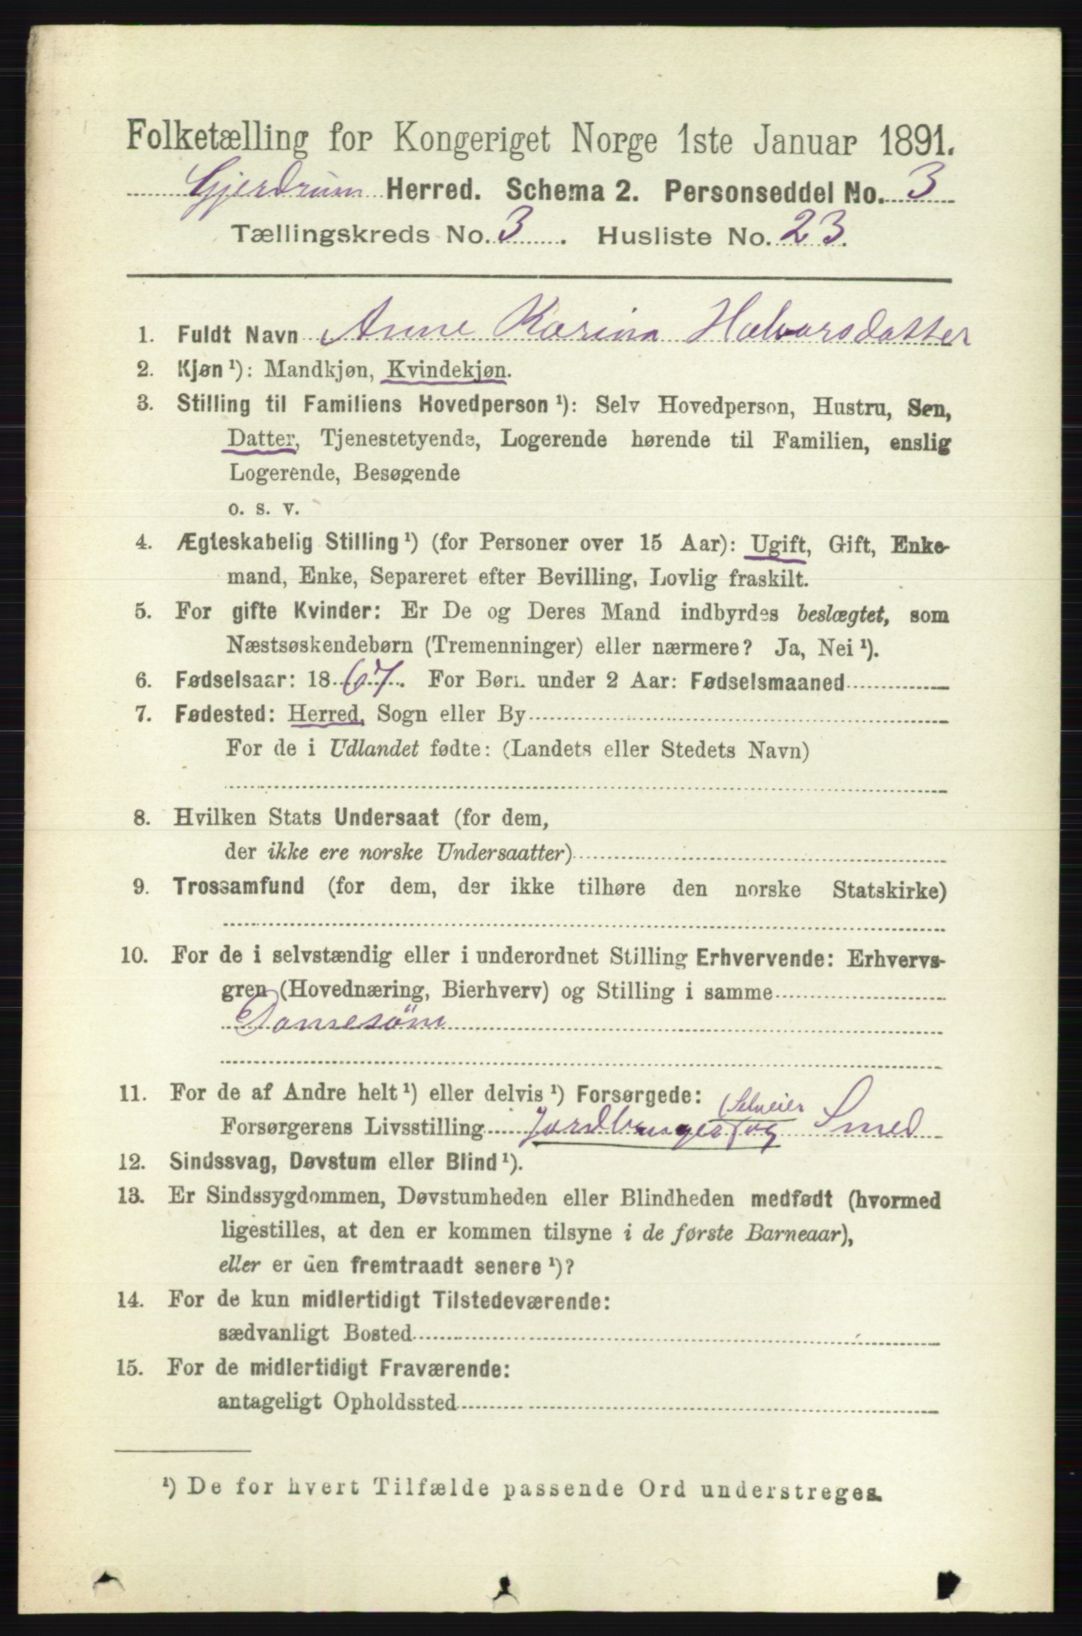 Folketælling for Kongeriget Norge 1ste Januar 1891.
Gjerdrum Herred. Schema 2. Personseddel No. 3
Tællingskreds No. 3. Husliste No. 23.
1. Fuldt Navn Anne Karina Halvorsdatter
2. Kjøn ¹): Mandkjøn, Kvindekjøn.
3. Stilling til Familiens Hovedperson ¹): Selv Hovedperson, Hustru, Søn,
Datter, Tjenestetyende, Logerende hørende til Familien, enslig
Logerende, Besøgende
o. s. v.
4. Ægteskabelig Stilling ¹) (for Personer over 15 Aar): Ugift, Gift, Enke-
mand, Enke, Separeret efter Bevilling, Lovlig fraskilt.
5. For gifte Kvinder: Er De og Deres Mand indbyrdes beslægtet, som
Næstsøskendebørn (Tremenninger) eller nærmere? Ja, Nei ¹).
6. Fødselsaar: 1867. For Børn under 2 Aar: Fødselsmaaned
7. Fødested: Herred, Sogn eller By
For de i Udlandet fødte: (Landets eller Stedets Navn)
8. Hvilken Stats Undersaat (for dem,
der ikke ere norske Undersaatter)
9. Trossamfund (for dem, der ikke tilhøre den norske Statskirke)
10. For de i selvstændig eller i underordnet Stilling Erhvervende: Erhvervs-
gren (Hovednæring, Bierhverv) og Stilling i samme
Damesøm
11. For de af Andre helt ¹) eller delvis ¹) Forsørgede:
Selveier
Forsørgerens Livsstilling Jordbruger og Smed
12. Sindssvag, Døvstum eller Blind ¹).
13. Er Sindssygdommen, Døvstumheden eller Blindheden medfødt (hvormed
ligestilles, at den er kommen tilsyne i de første Barneaar),
eller er den fremtraadt senere ¹)?
14. For de kun midlertidigt Tilstedeværende:
sædvanligt Bosted
15. For de midlertidigt Fraværende:
antageligt Opholdssted
¹) De for hvert Tilfælde passende Ord understreges.